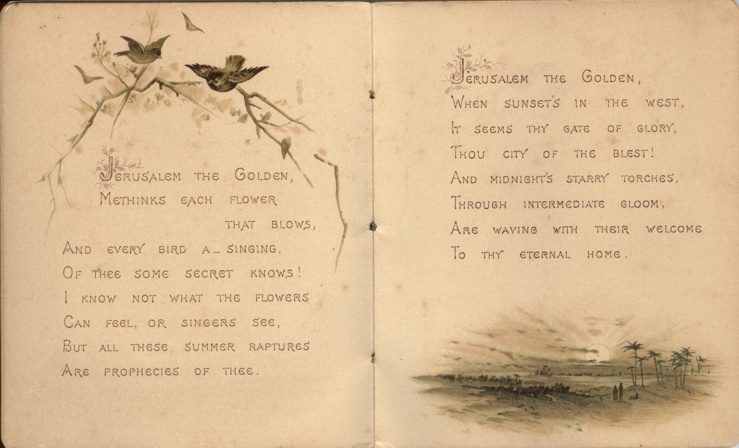 Jerusalem the Golden,
Methinks each flower
that blows,
And every bird a-singing,
Of thee some secret knows!
I know not what the flowers
Can feel, or singers see,
But all these summer raptures
Are prophecies of thee.
Jerusalem the Golden,
When sunset's in the west,
It seems thy gate of glory,
Thou city of the blest!
And midnight's starry torches,
Through intermediate gloom,
Are waving with their welcome
To thy eternal home.